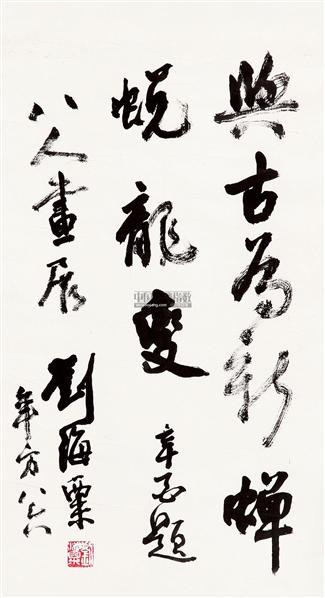 與古為新蟬
蛻龍變
辛酉題
八人畫展
劉海粟
年方八六